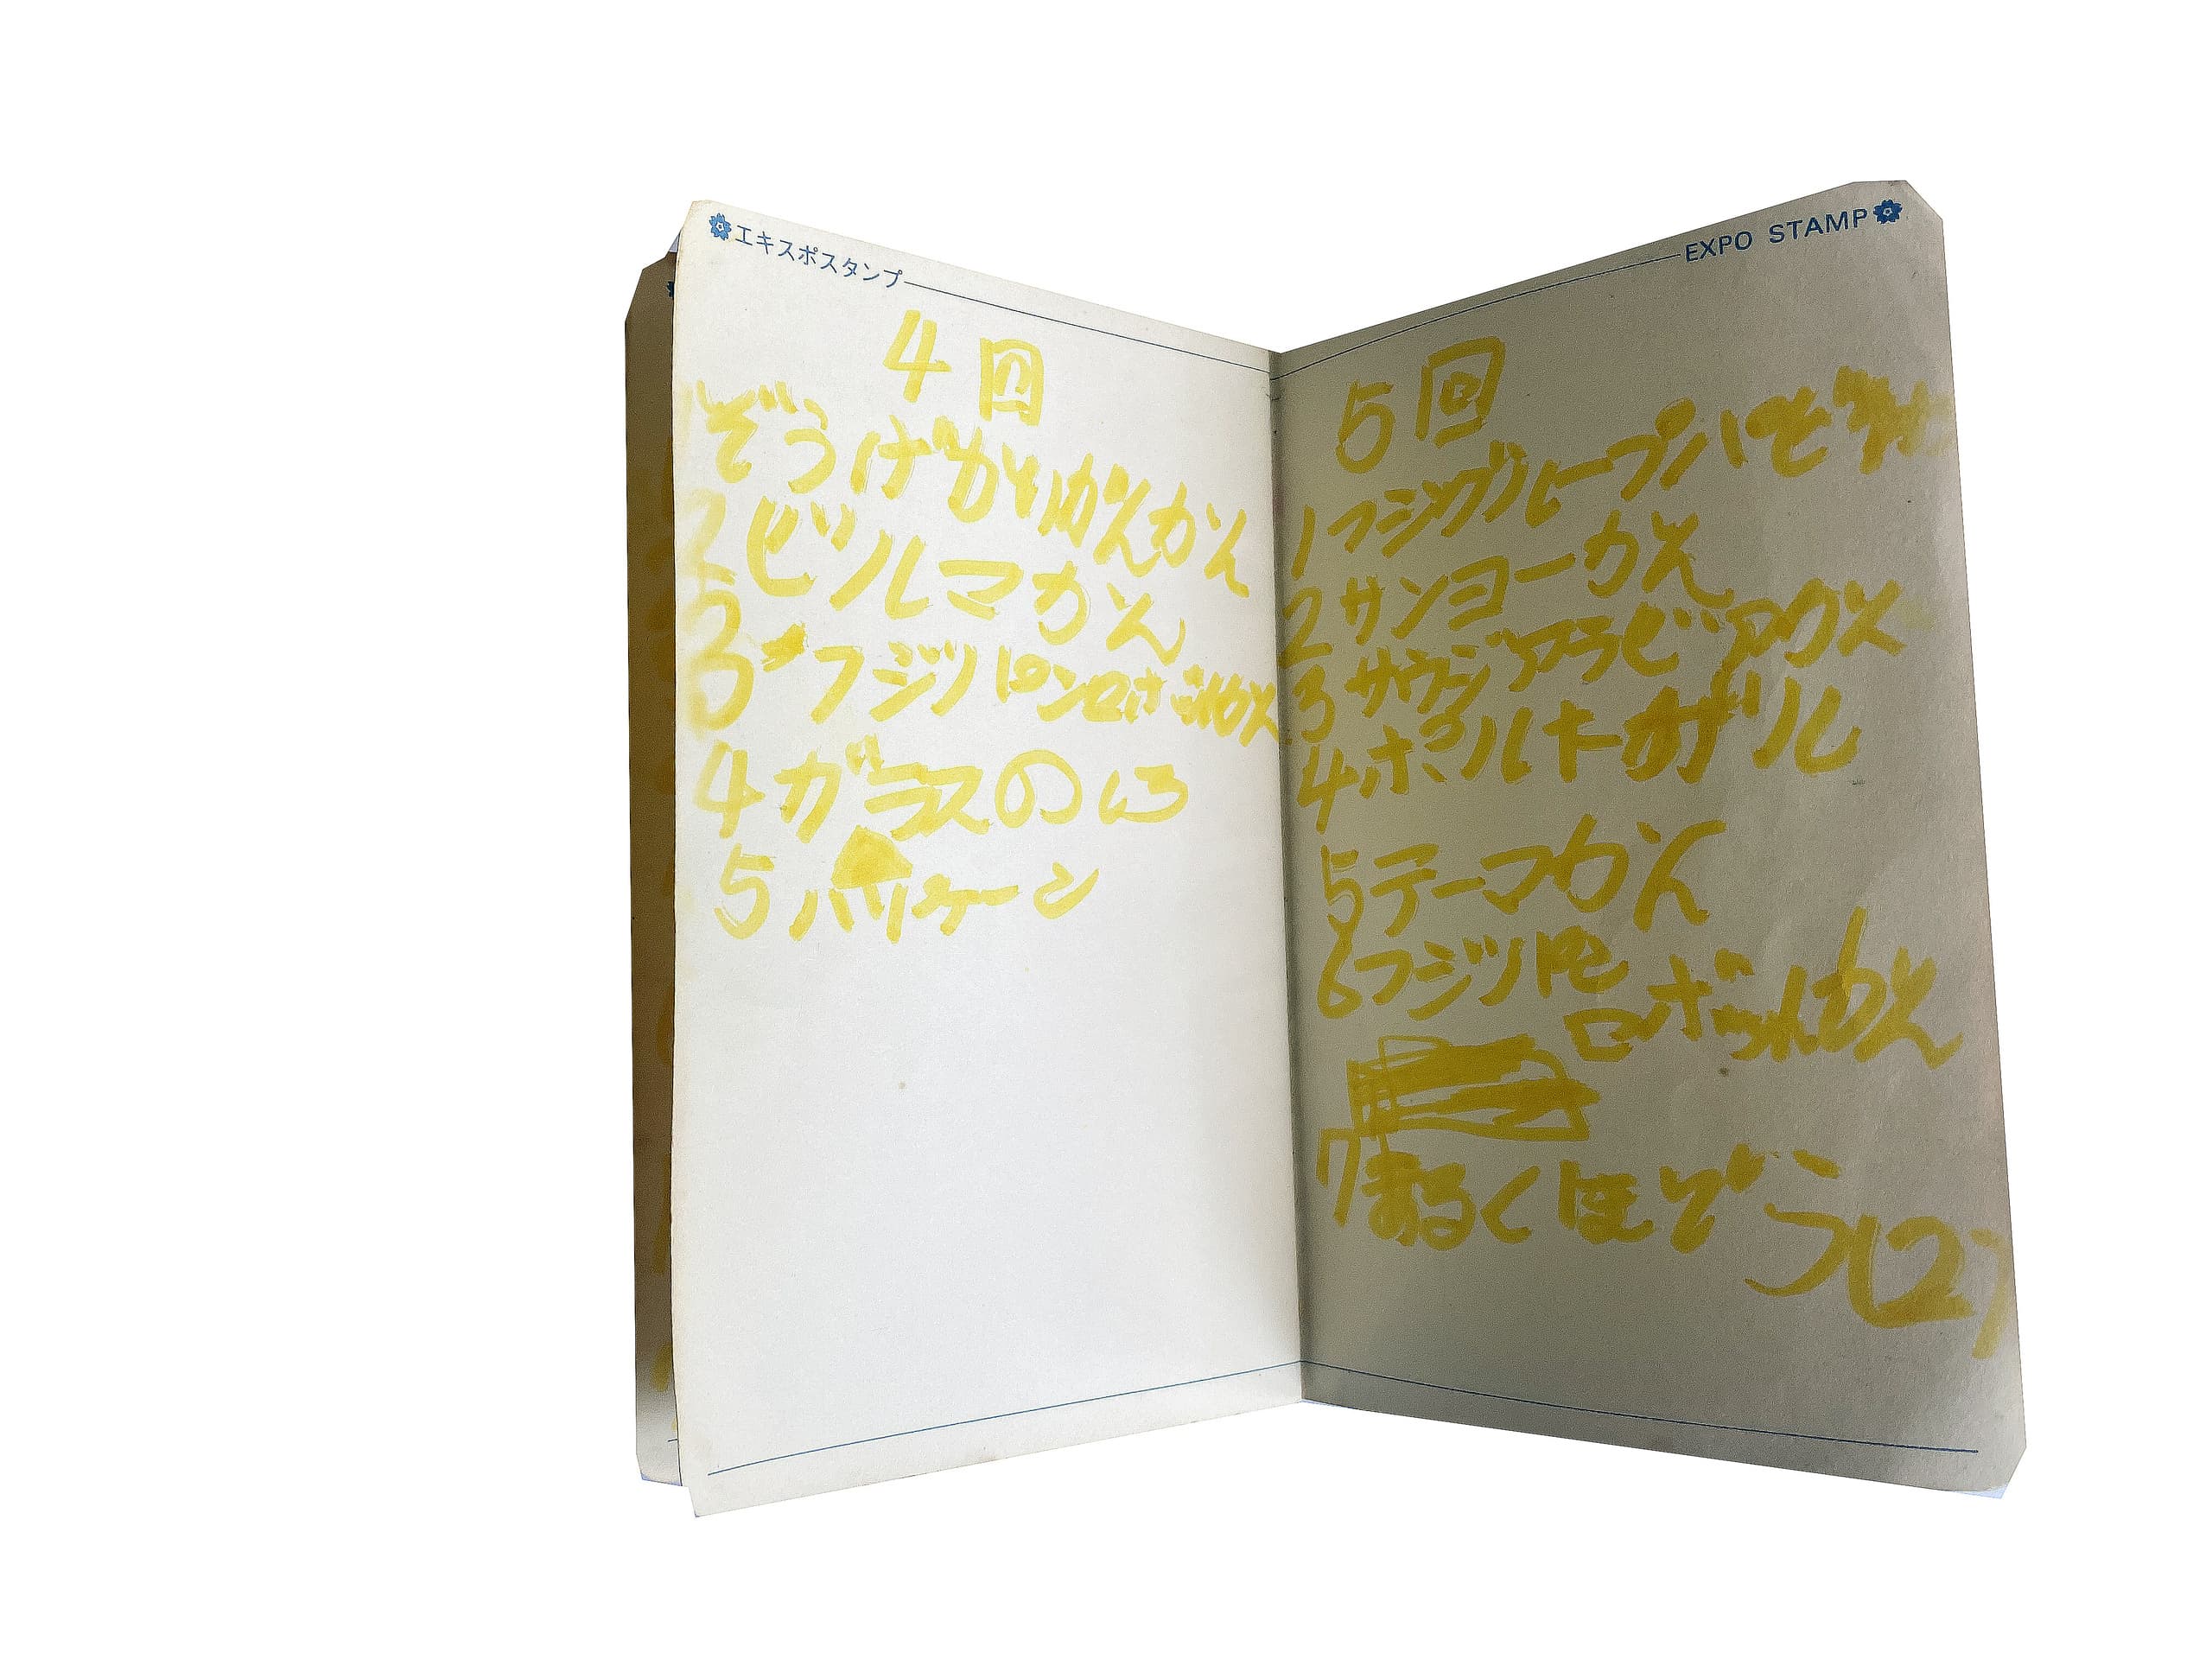 エキスポスタンプ
4回
ぞうげかいがんかん
2ビルマかん
3フジパンロボットかん
4ガラスのしろ
5ハリケーン
EXPO STAMP
5回
1フジグループパビ
2サンヨーかん
3サウジアラビアかん
4ポルトガル
5テーマかん
6フジパン
ロボットかん
7あるくほどう(2)